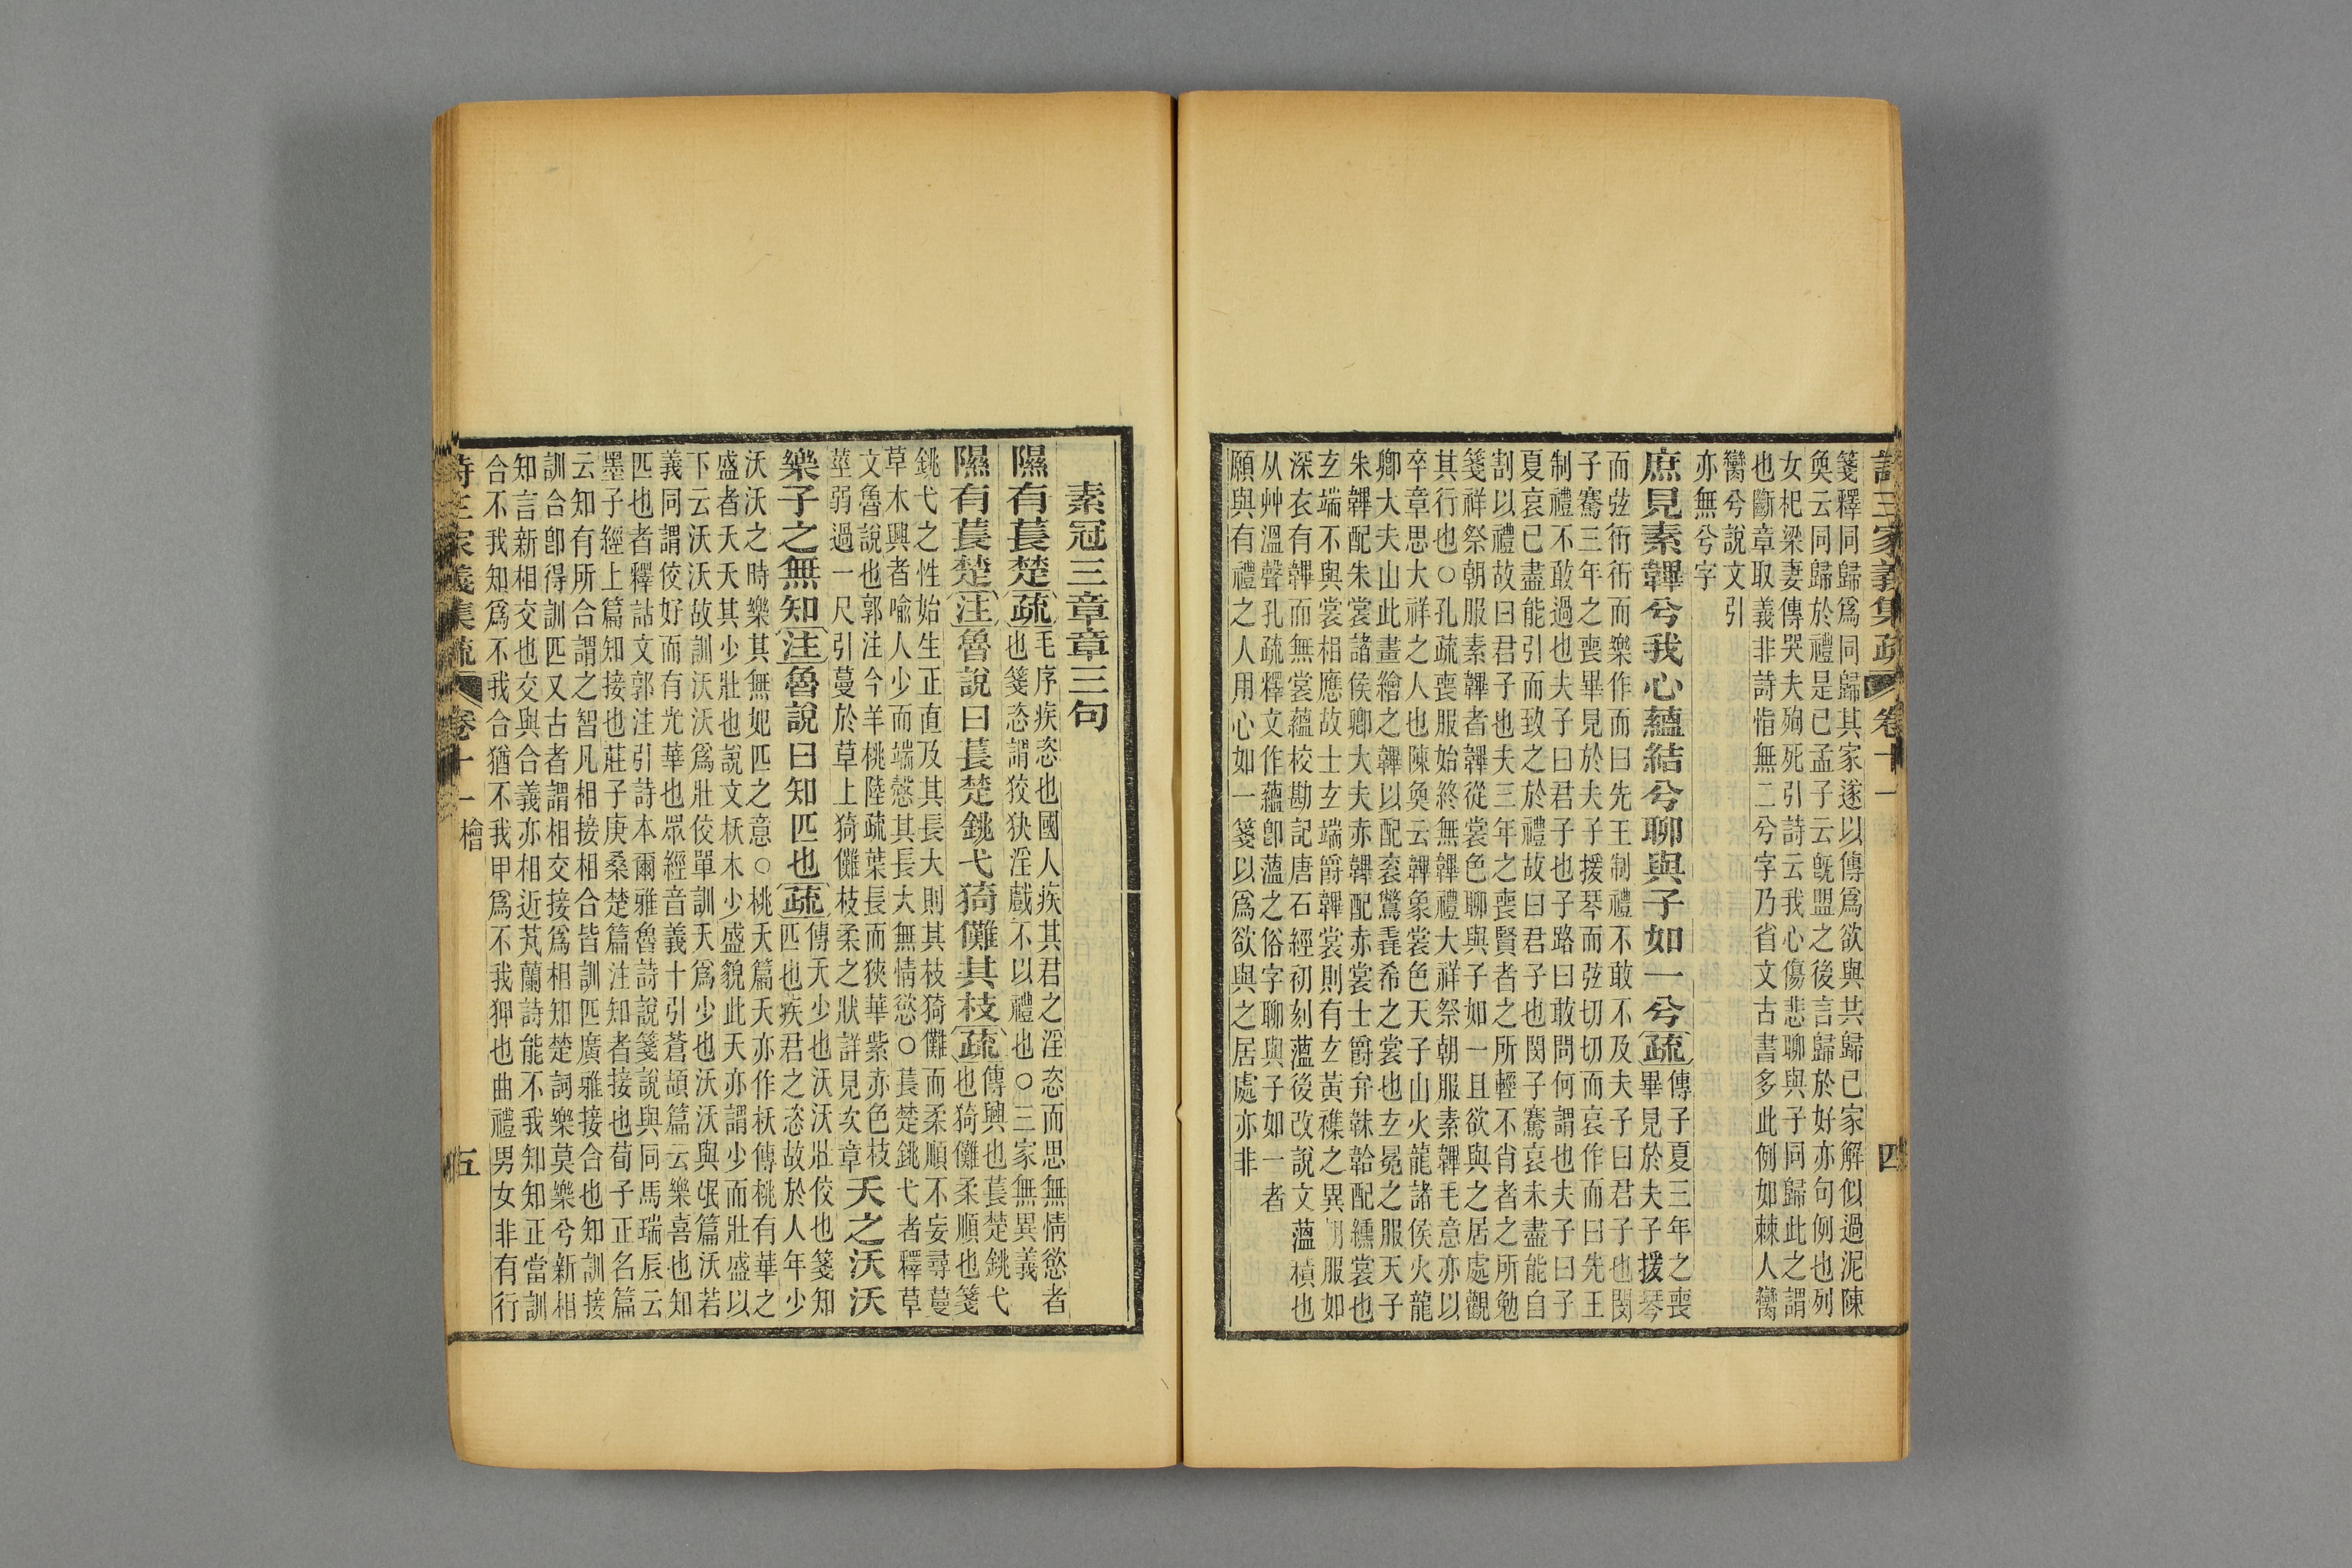 詩三家義集疏 卷十一 四
箋釋同歸爲同歸其家遂以傳爲欲與共歸已家解似過泥陳
奐云同歸於禮是已孟子云旣盟之後言歸於好亦句例也列
女杞梁妻傳哭夫殉死引詩云我心傷悲聊與子同歸此之謂
也斷章取義非詩恉無二兮字乃省文古書多此例如棘人臠
臠兮說文引
亦無兮字
庶見素韠兮我心蘊結兮聊與子如一兮疏
傳子夏三年之喪
畢見於夫子援琴
而弦衎衎而樂作而曰先王制禮不敢不及夫子曰君子也閔
子騫三年之喪畢見於夫子援琴而弦切切而哀作而曰先王
制禮不敢過也夫子曰君子也子路曰敢問何謂也夫子曰子
夏哀已盡能引而致之於禮故曰君子也閔子騫哀未盡能自
割以禮故曰君子也夫三年之喪賢者之所輕不肖者之所勉
箋祥祭朝服素韠者韠從裳色聊與子如一且欲與之居處觀
其行也○孔疏喪服始終無韠禮大祥祭朝服素韠毛意亦以
卒章思大祥之人也陳奐云韠象裳色天子山火龍諸侯火龍
卿大夫山此畫繪之韠以配衮鷩毳希之裳也玄冕之服天子
朱韠配朱裳諸侯卿大夫赤韠配赤裳士爵弁韎韐配纁裳也
玄端不與裳相應故士玄端爵韠裳則有玄黃襍之異朝服如
深衣有韠而無裳蘊校勘記唐石經初刻薀後改說文薀積也
从艸溫聲孔疏釋文作蘊卽薀之俗字聊與子如一者
願與有禮之人用心如一箋以爲欲與之居處亦非
素冠三章章三句
隰有萇楚疏
毛序疾恣也國人疾其君之淫恣而思無情慾者
也箋恣謂狡狹淫戲不以禮也○三家無異義
隰有萇楚注魯說曰萇楚銚弋猗儺其枝疏
傳興也萇楚銚弋
也猗儺柔順也箋
銚弋之性始生正直及其長大則其枝猗儺而柔順不妄尋蔓
草木興者喻人少而端慤其長大無情慾○萇楚銚弋者釋草
文魯說也郭注今羊桃陸疏葉長而狹華紫赤色枝
莖弱過一尺引蔓於草上猗儺枝柔之狀詳見次章
夭之沃沃
樂子之無知注魯說曰知匹也疏
傳夭少也沃沃壯佼也箋知
匹也疾君之恣故於人年少
沃沃之時樂其無妃匹之意○桃夭篇夭亦作枖傳桃有華之
盛者夭夭其少壯也說文枖木少盛貌此夭亦謂少而壯盛以
下云沃沃故訓沃沃爲壯佼單訓夭爲少也沃沃與氓篇沃若
義同謂佼好而有光華也眾經音義十引蒼頡篇云樂喜也知
匹也者釋詁文郭注引詩本爾雅魯詩說箋說與同馬瑞辰云
墨子經上篇知接也莊子庚桑楚篇注知者接也荀子正名篇
云知有所合謂之智凡相接相合皆訓匹廣雅接合也知訓接
訓合卽得訓匹又古者謂相交接爲相知楚詞樂莫樂兮新相
知言新相交也交與合義亦相近芄蘭詩能不我知知正當訓
合不我知爲不我合猶不我甲爲不我狎也曲禮男女非有行
詩三家義集疏 卷十一 檜 五